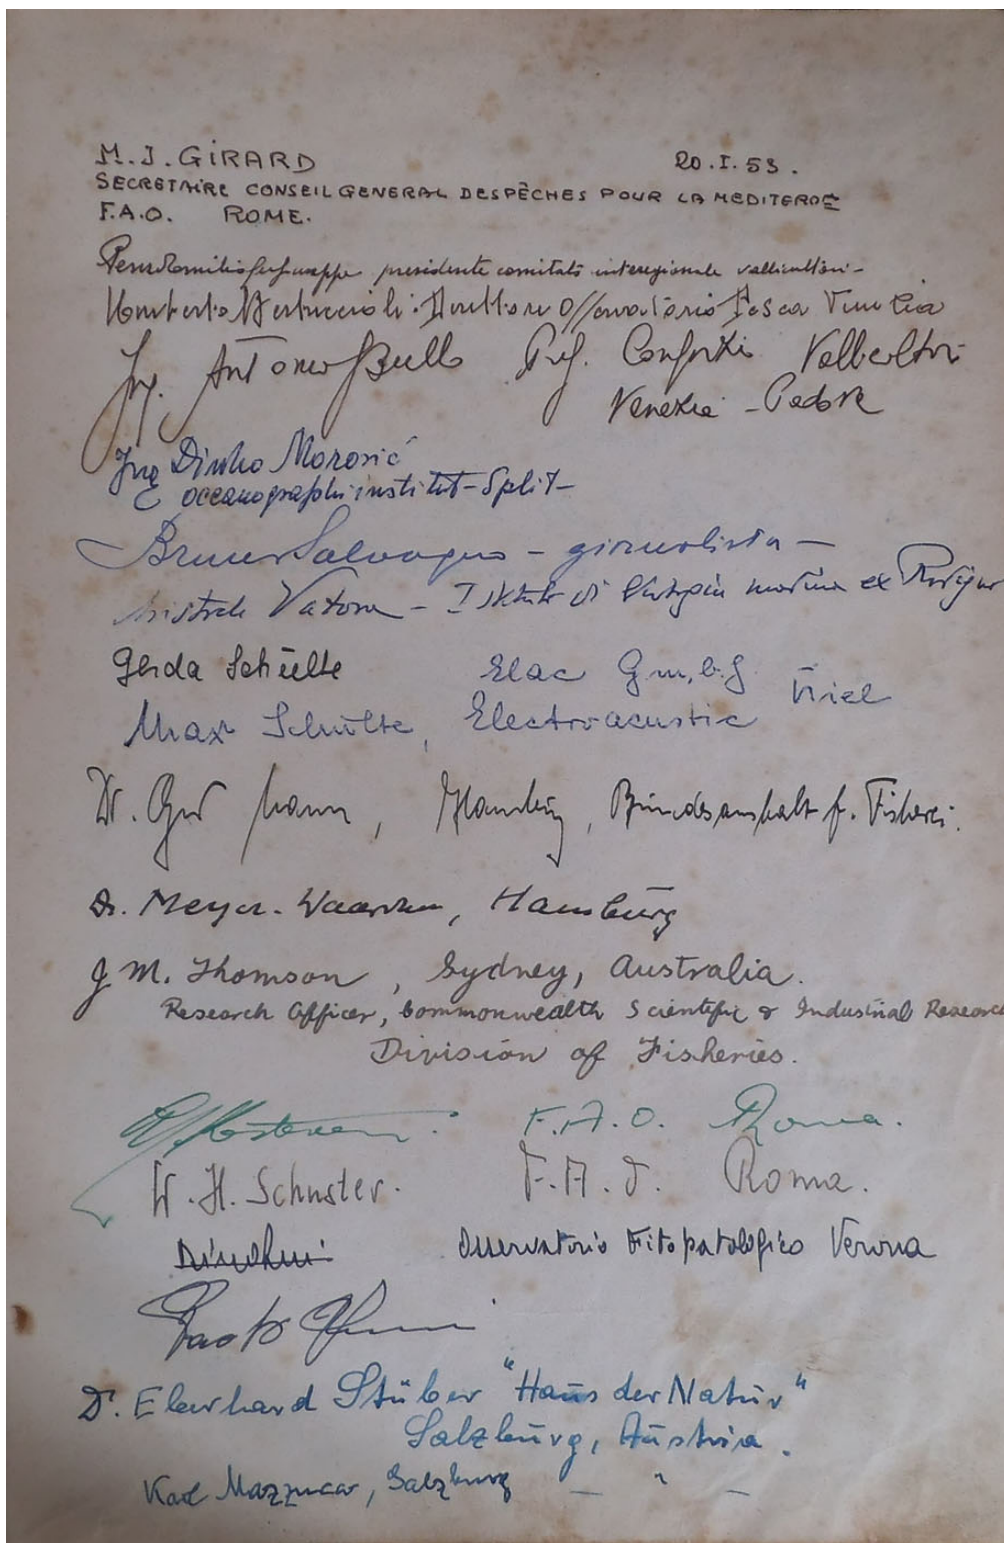 M. J. GIRARD 20.I.53.
SECRETAIRE CONSEIL GENERAL DES PÊCHES POUR LA MEDITERÉE
F.A.O. ROME.
presidente comitato interegionale vallicultori -
Umberto Bertuccioli. Direttore Osservatorio Pesca Venezia
Ing. Antonio Bullo Prof. Conforti Vallicoltori
Venezia - Padova
Ing Dinko Morović
oceanografski institut - Split -
Bruno Salvagno - giornalista -
Aristocle Vatova - Istituto di biologia marina ex Rovigno
Gerda Schülte Elac G.m.b.H. Kiel
Max Schülte, Electroacustic
Dr. Hamburg, Bundesanstalt f. Fischerei.
Dr. Meyer-Waarden, Hamburg
J M. Thomson, Sydney, Australia.
Research Officer, Commonwealth Scientific & Industrial Research
Division of Fisheries.
F.A.O. Roma.
W. H. Schuster. F.A.O. Roma.
Osservatorio Fitopatologico Verona
Dr. Eberhard Stüber "Haus der Natur"
Salzburg, Austria.
Karl Mazzucco, Salzburg — " —